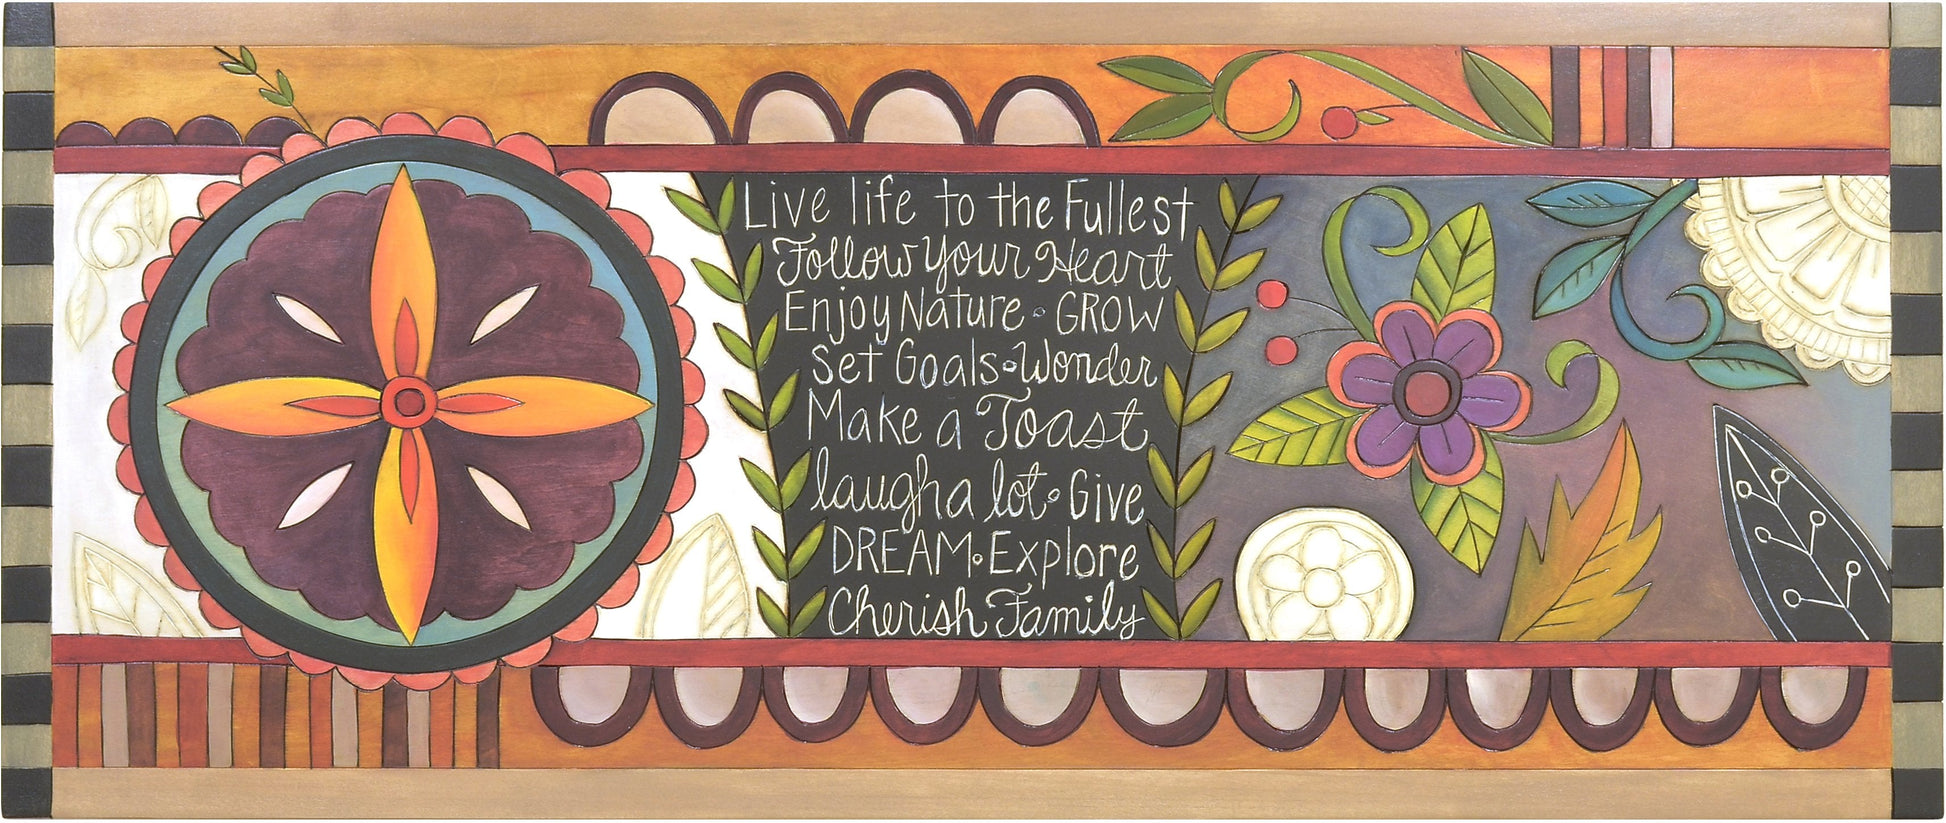 Live life to the Fullest
Follow Your Heart
Enjoy Nature • GROW
Set Goals • Wonder
Make a Toast
laugh a lot • Give
DREAM • Explore
Cherish Family